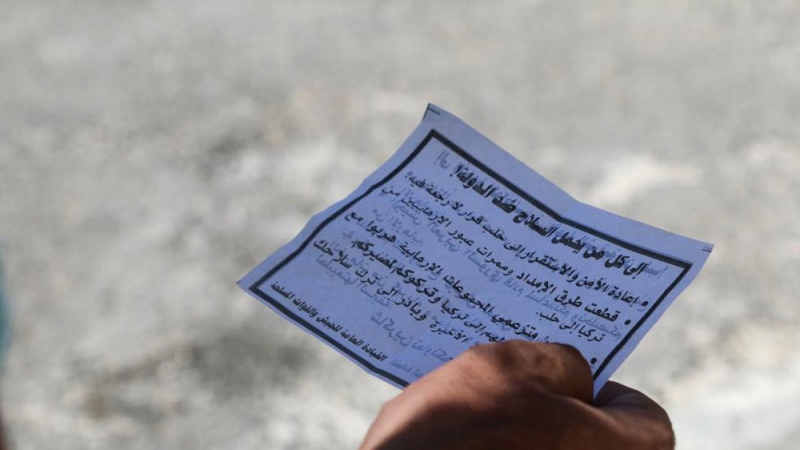 إلى كل من يحمل السلاح ضد الدولة!
• إعادة الأمن والاستقرار إلى حلب قرار لا رجعة فيه!
• قطعت طرق الإمداد وممرات عبور الإرهابيين من
تركيا الى حلب.
ومتزعمي المجموعات الإرهابية هربوا مع
إلى تركيا وتركوكم لمصيركم.
الأخيرة وبادر الى ترك سلاحك
القيادة العامة للجيش والقوات المسلحة